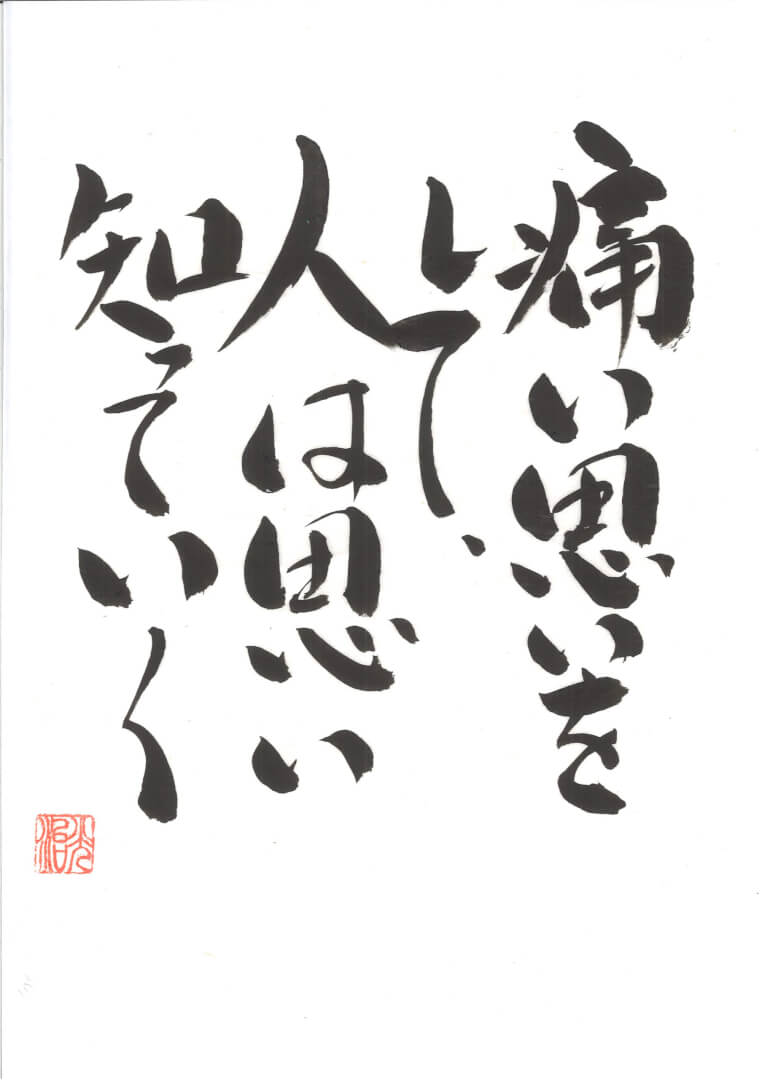 痛い思いを
して、
人は思い
知っていく